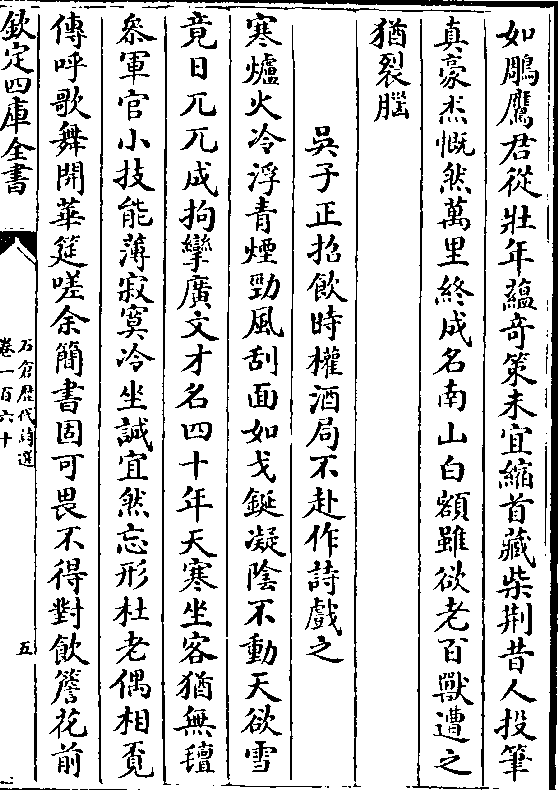 如鵰鷹君從壯年蘊奇策未宜縮首藏柴荆昔人投筆
真豪杰慨然萬里終成名南山白額雖欲老百獸遭之
猶裂腦
吳子正招飲時權酒局不赴作詩戲之
寒爐火冷浮青煙勁風刮面如戈鋋凝陰不動天欲雪
竟日兀兀成拘攣廣文才名四十年天寒坐客猶無氊
叅軍官小技能薄寂寞冷坐誠宜然忘形杜老偶相覔
傳呼歌舞開華筵嗟余簡書固可畏不得對飲簷花前
欽定四庫全書
石倉歴代詩選
卷一百六十
五